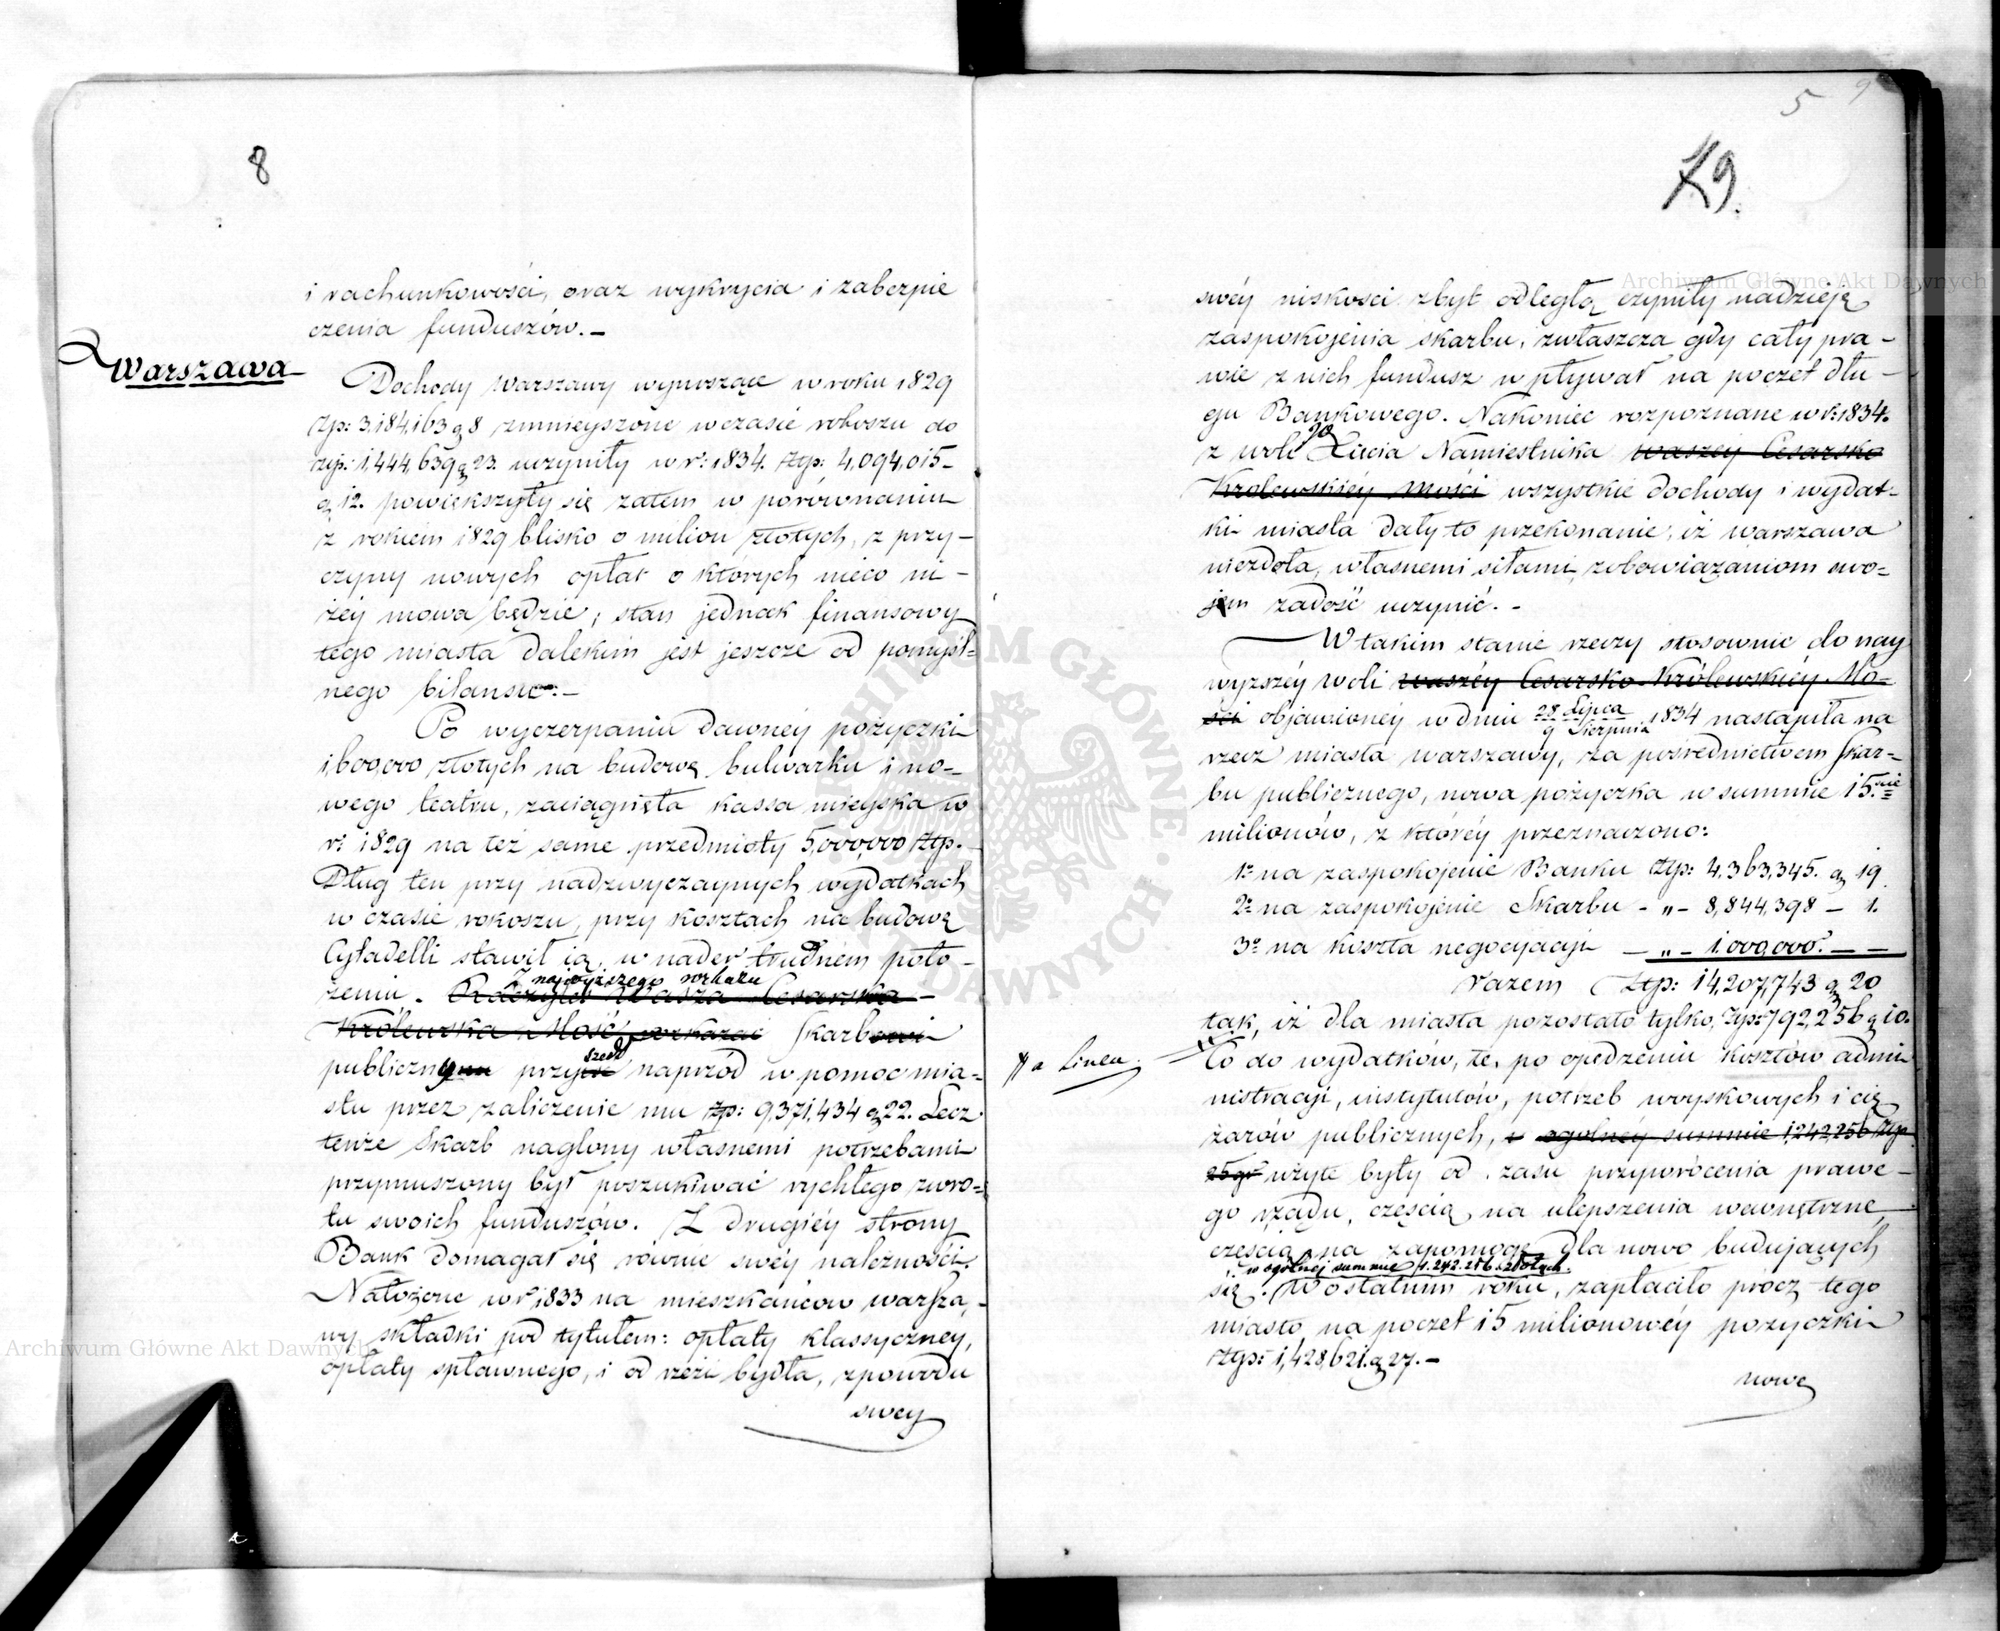 8
i rachunkowości, oraz wykrycia i zabezpie
czenia funduszów.–
Warszawa
Dochody Warszawy wynoszące w roku 1829
Złp: 3,184,163 g 8 zmnieyszone w czasie rokoszu do
złp: 1,444,639 g 23. uczyniły w r: 1834. Złp: 4,094,015–
g 12. powiększyły się zatem w porównaniu
z rokiem 1829 blisko o milion złotych, z przy–
czyny nowych opłat o których nieco ni–
żéy mowa będzie; stan jednak finansowy
tego miasta dalekim jest jeszcze od pomyśl=
nego bilansu.–
Po wyczerpaniu dawnéy pożyczki
1,600,000 złotych na budowę bulwarku i no–
wego teatru, zaciągnęła kassa mieyska w
r: 1829 na też same przedmioty 5,000,000 Złp.–
Dług ten przy nadzwyczaynych wydatkach
w czasie rokoszu, przy kosztach na budowę
Cytadelli stawił ią, w nader trudném poło–
z najwyższego rozkazu
żeniu. Raczyła Wasza Cesarska–
Królewska Mość rozkazać Skarbowi
szedł
publiczny przyść naprzód w pomoc mia=
stu przez zaliczenie mu złp: 9,371,434 g 22. Lecz
tenże Skarb naglony własnemi potrzebami
przymuszony był poszukiwać rychłego zwro=
tu swoich funduszów. Z drugiéy strony
Bank domagał się równie swéy należności.
Nałożone w r: 1833 na mieszkańców Warsza–
wy składki pod tytułem: opłaty klassyczney,
opłaty spławnego, i od rzezi bydła, z powodu
swey
5 9
79.
swéy niskości zbyt odległą czyniły nadzieję
zaspokojenia skarbu, zwłaszcza gdy cały pra–
wie z nich fundusz wpływał na poczet dłu–
gu Bankowego. Nakoniec rozpoznane w r: 1834.
z woli JO Xięcia Namiestnika Waszey Cesarsko
Krolewskiéy Mości wszystkie dochody i wydat–
ki miasta dały to przekonanie, iż Warszawa
niezdoła, własnemi siłami, zobowiązaniom swo=
jem zadość uczynić.–
W takim stanie rzeczy stosownie do nay
wyższéy woli Waszéy Cesarsko Królewskiéy Mo=
ści objawionéy w dniu 28 Lipca 1834 nastąpiła na
9 Sierpnia
rzecz miasta Warszawy, za pośrednictwem Skar–
bu publicznego, nowa pożyczka w summie 15.
milionów, z któréy przeznaczono:
1º na zaspokojenie Banku Złp: 4,363,345. g 19.
2º na zaspokojenie Skarbu – „ – 8,844,398 – 1.
3º na koszta negocyacyi – „ – 1,000,000. – –
razem Złp: 14,207,743 g 20
tak, iż dla miasta pozostało tylko, Złp: 792,256 g 10.
a Linea.
Co do wydatków, te, po opędzeniu kosztów admi
nistracyi, instytutów, potrzeb woyskowych i cię
żarów publicznych, w ogolney summie 1,242,256 Złp
25 gr użyte były od czasu przywrócenia prawe–
go rządu, częścią na ulepszenia wewnętrzne
częścią na zapomogę dla nowo budujących
w ogólnej summie 1.242.256 złotych.
się. W ostatnim roku, zapłaciło procz tego
miasto na poczet 15 milionowéy pożyczki
Złp: 1,428,621. g 27.–
nowe
Archiwum Główne Akt Dawnych
Archiwum Główne Akt Dawnych
ARCHIWUM GŁÓWNE AKT DAWNYCH